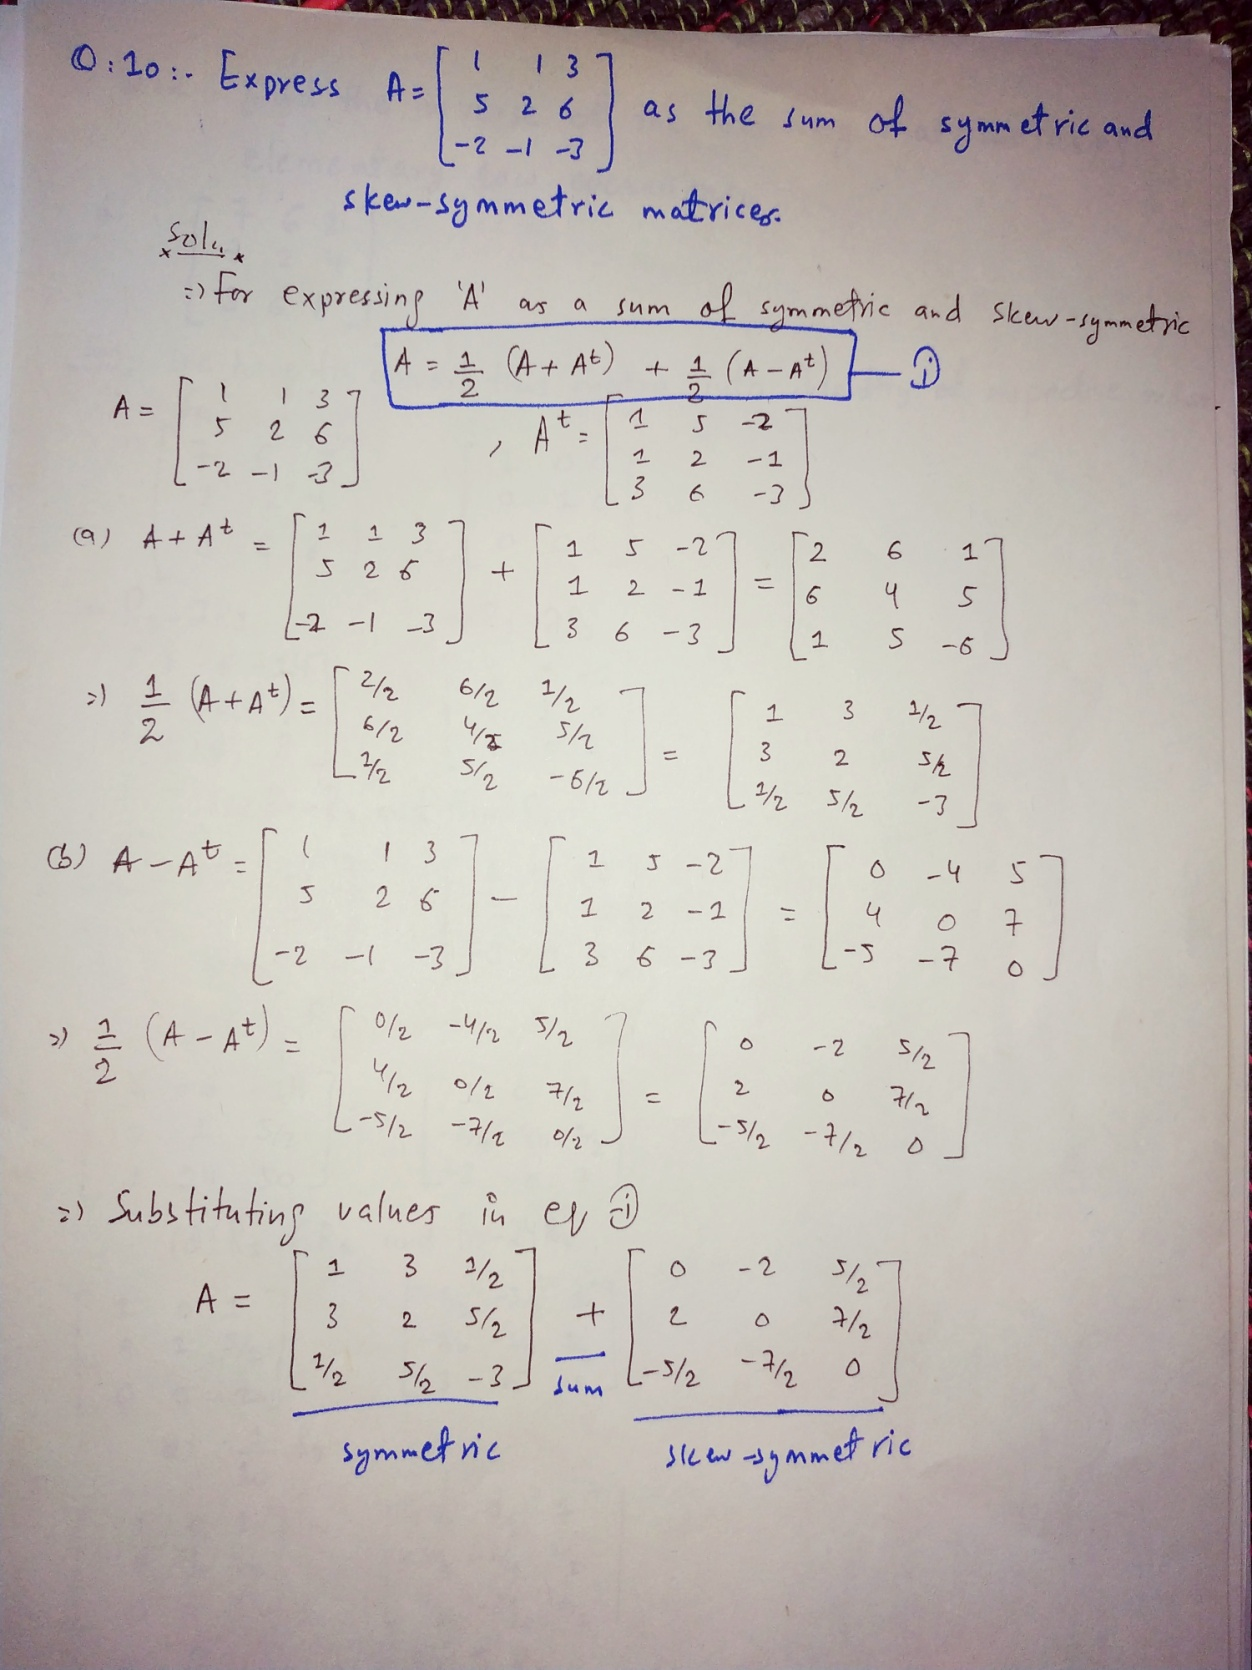 Q:10:- Express A = [1 1 3; 5 2 6; -2 -1 -3] as the sum of symmetric and
skew-symmetric matrices.
Solu
=> For expressing 'A' as a sum of symmetric and skew-symmetric
A = 1/2 (A + A^t) + 1/2 (A - A^t) — (i)
A = [1 1 3; 5 2 6; -2 -1 -3] , A^t = [1 5 -2; 1 2 -1; 3 6 -3]
(a) A + A^t = [1 1 3; 5 2 6; -2 -1 -3] + [1 5 -2; 1 2 -1; 3 6 -3] = [2 6 1; 6 4 5; 1 5 -6]
=> 1/2 (A + A^t) = [2/2 6/2 1/2; 6/2 4/2 5/2; 1/2 5/2 -6/2] = [1 3 1/2; 3 2 5/2; 1/2 5/2 -3]
(b) A - A^t = [1 1 3; 5 2 6; -2 -1 -3] - [1 5 -2; 1 2 -1; 3 6 -3] = [0 -4 5; 4 0 7; -5 -7 0]
=> 1/2 (A - A^t) = [0/2 -4/2 5/2; 4/2 0/2 7/2; -5/2 -7/2 0/2] = [0 -2 5/2; 2 0 7/2; -5/2 -7/2 0]
=> Substituting values in eq (i)
A = [1 3 1/2; 3 2 5/2; 1/2 5/2 -3] + [0 -2 5/2; 2 0 7/2; -5/2 -7/2 0]
sum
symmetric skew-symmetric